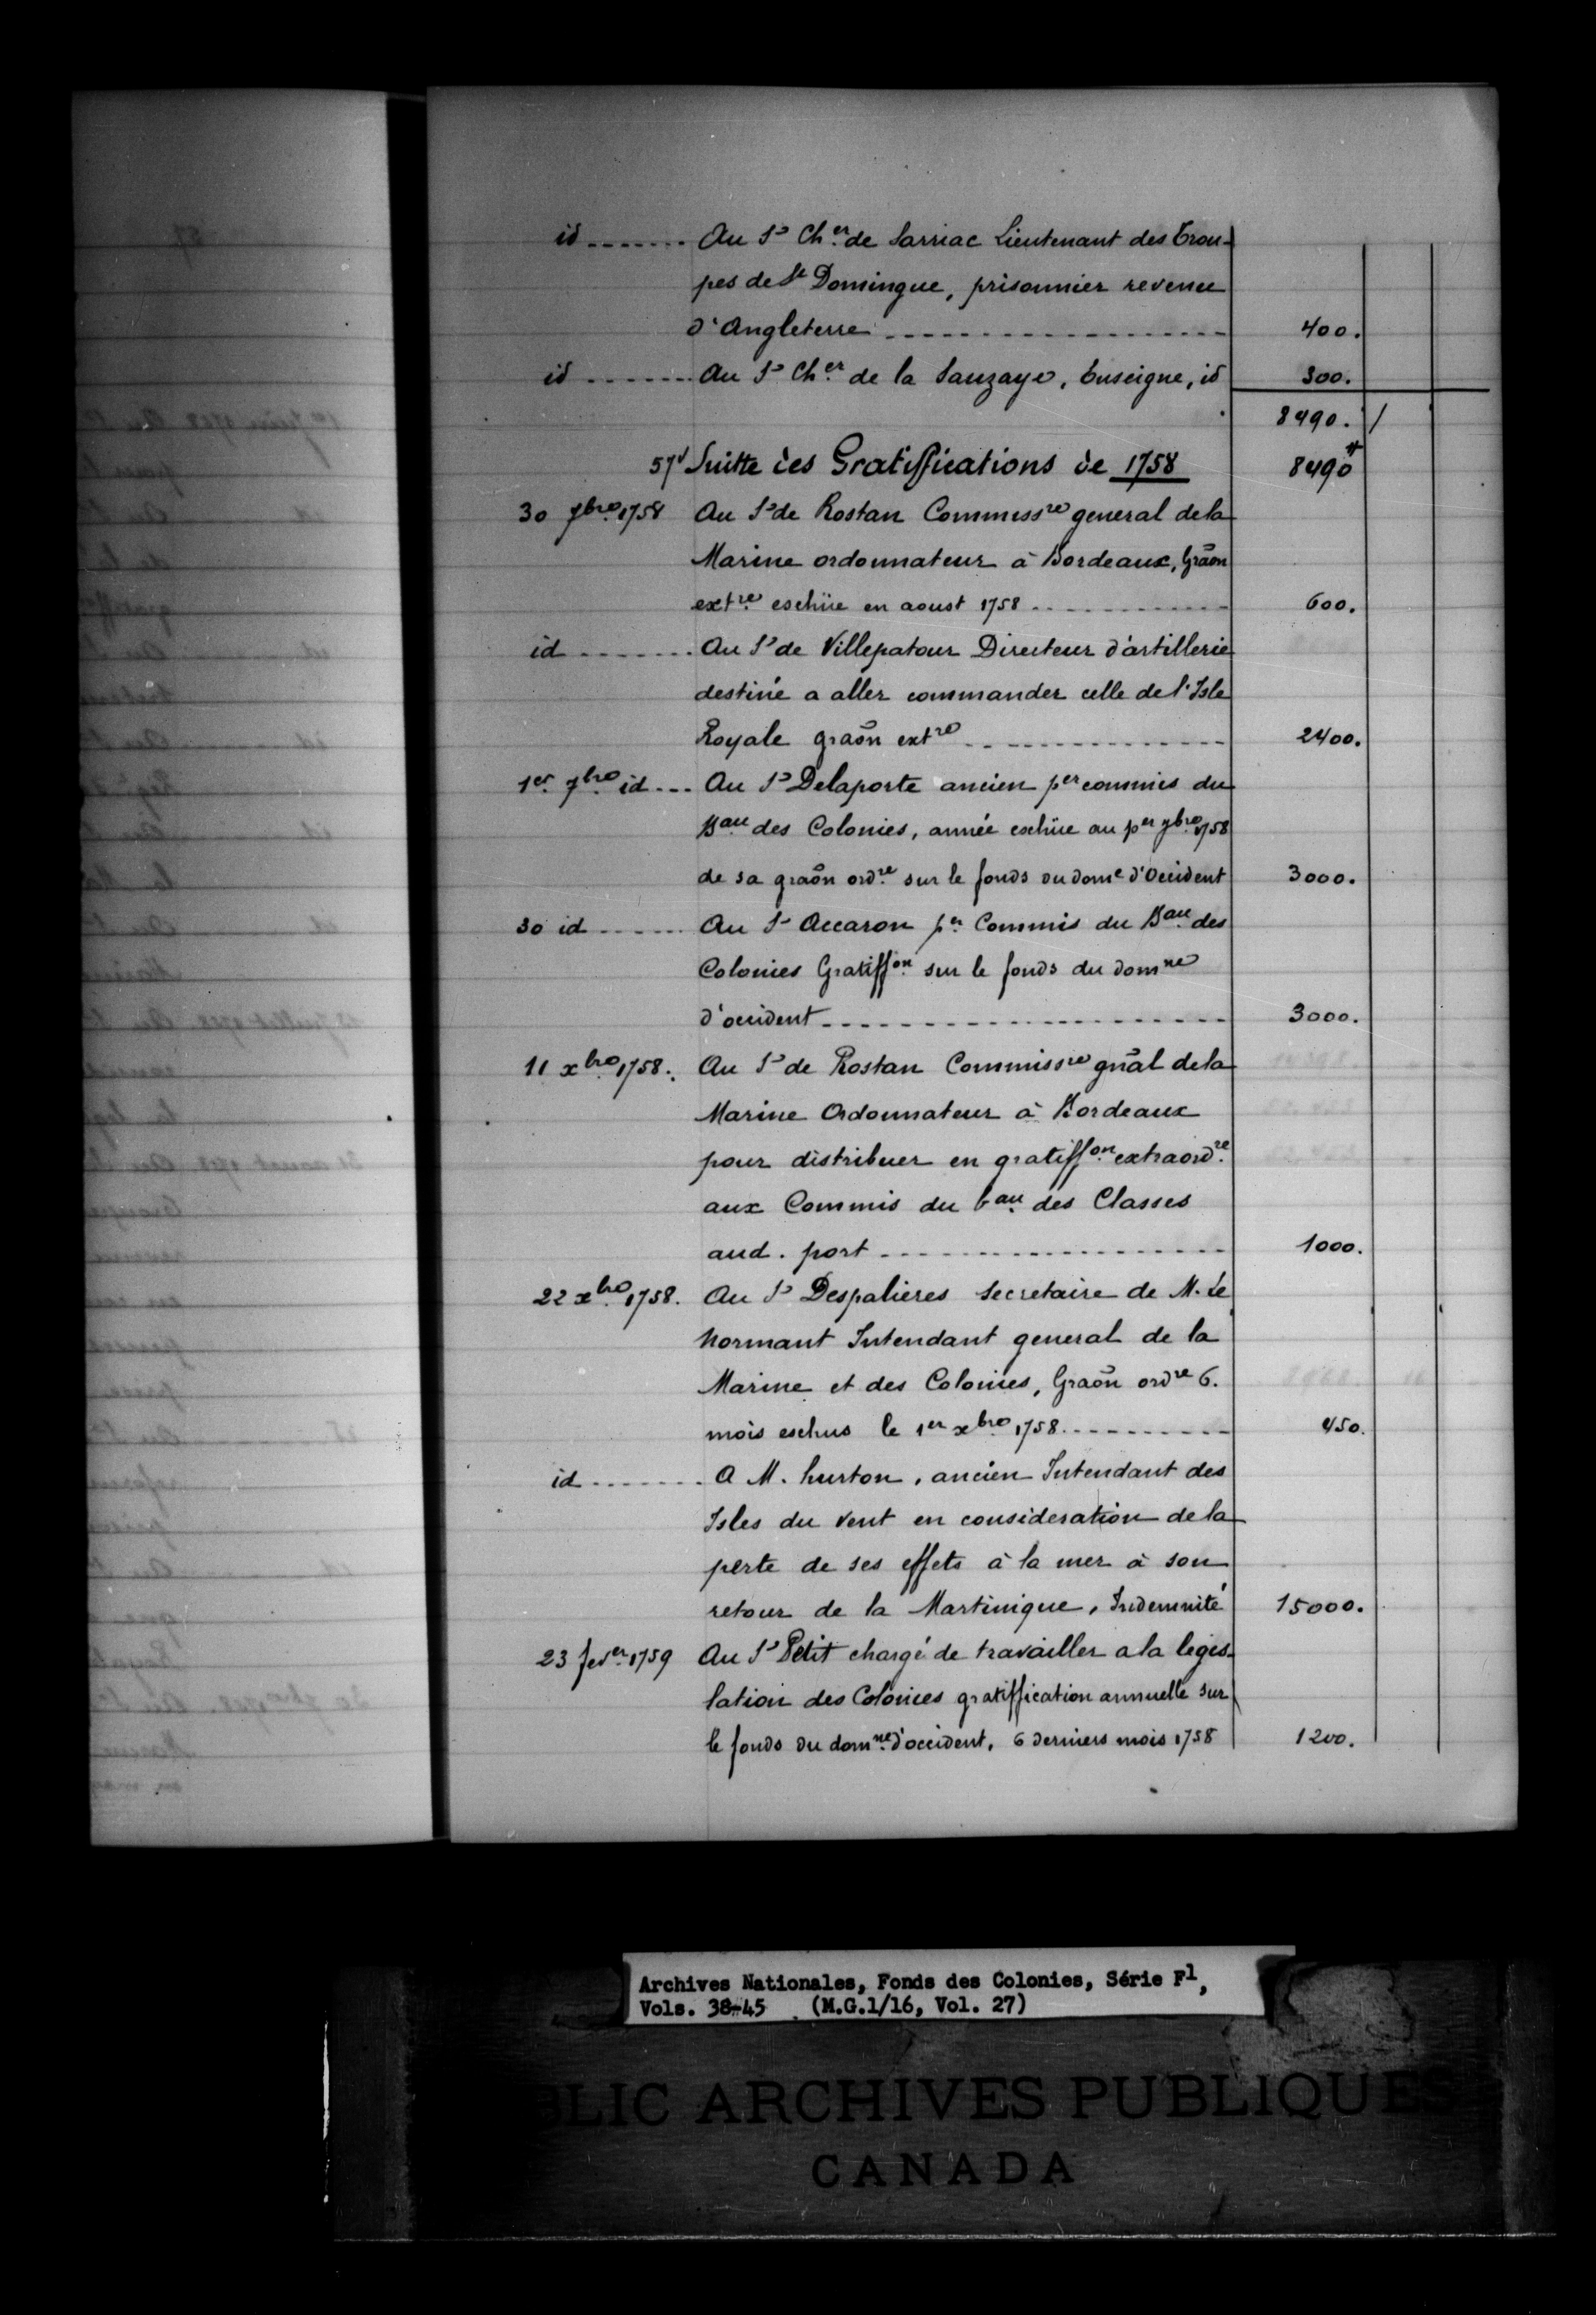 id ....... Au Sr Cher de Sarriac Lieutenant des Trou-
pes de St Domingue, prisonnier revenu
d'Angleterre .................. 400.
id ....... Au Sr Cher de la Sauzaye, Enseigne, id 300.
8490. /
57v Suitte des Gratiffications de 1758 8490#
30 7bre 1758 Au Sr de Rostan Commissre general de la
Marine ordonnateur à Bordeaux, Graõn
extre eschüe en aoust 1758 ............ 600.
id ....... Au Sr de Villepatour Directeur d'artillerie
destiné a aller commander celle de l'Isle
Royale graõn extre ............... 2400.
1er 7bre id ... Au Sr Delaporte ancien per commis du
Bau des Colonies, année eschüe au per 7bre 1758
de sa graõn ordre sur le fonds du dome d'Occident 3000.
30 id ...... Au Sr Accaron per Commis du Bau des
Colonies Gratiffon sur le fonds du domne
d'occident ...................... 3000.
11 xbre 1758. Au Sr de Rostan Commissre gñal de la
Marine Ordonnateur à Bordeaux
pour distribuer en gratiffon extraordre
aux Commis du bau des Classes
aud. port .................... 1000.
22 xbre 1758. Au Sr Despalieres Secretaire de M. Le
Normant Intendant general de la
Marine et des Colonies, Graõn ordre 6.
mois eschus le 1er xbre 1758 .......... 450.
id ....... A M. hurson, ancien Intendant des
Isles du Vent en consideration de la
perte de ses effets à la mer à son
retour de la Martinique, Indemnité 15000.
23 fever 1759 Au Sr Petit chargé de travailler a la legis-
lation des Colonies gratiffication annuelle sur
le fonds du domne d'occident, 6 derniers mois 1758 1200.
Archives Nationales, Fonds des Colonies, Série F1,
Vols. 38-45 (M.G.1/16, Vol. 27)
BLIC ARCHIVES PUBLIQUES
CANADA